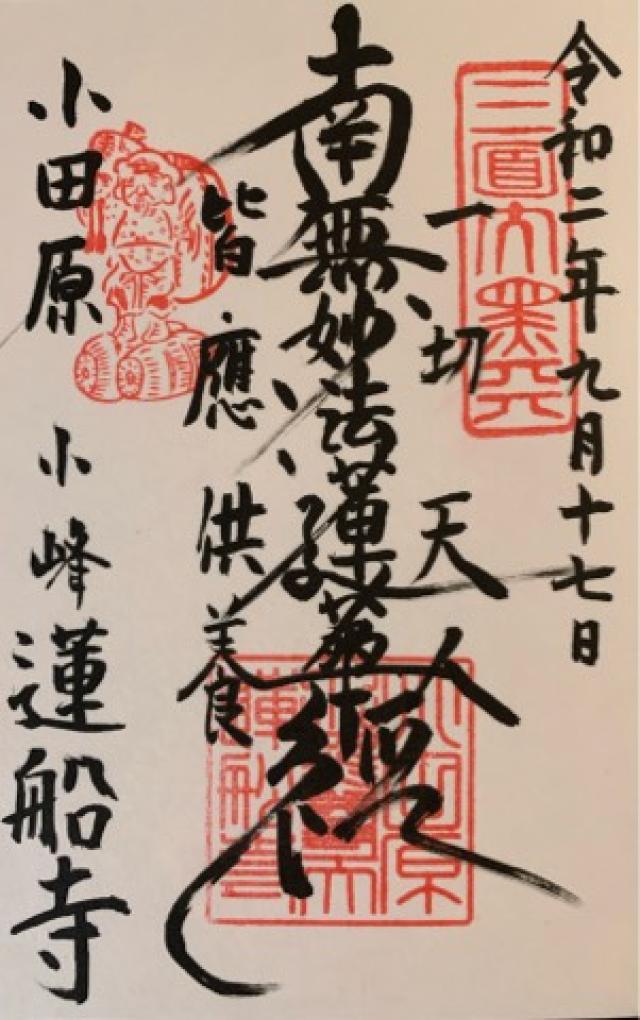 令和二年九月十七日
三面大黒天
一切天人
南無妙法蓮華経
皆應供養
小田原 小峰 蓮船寺